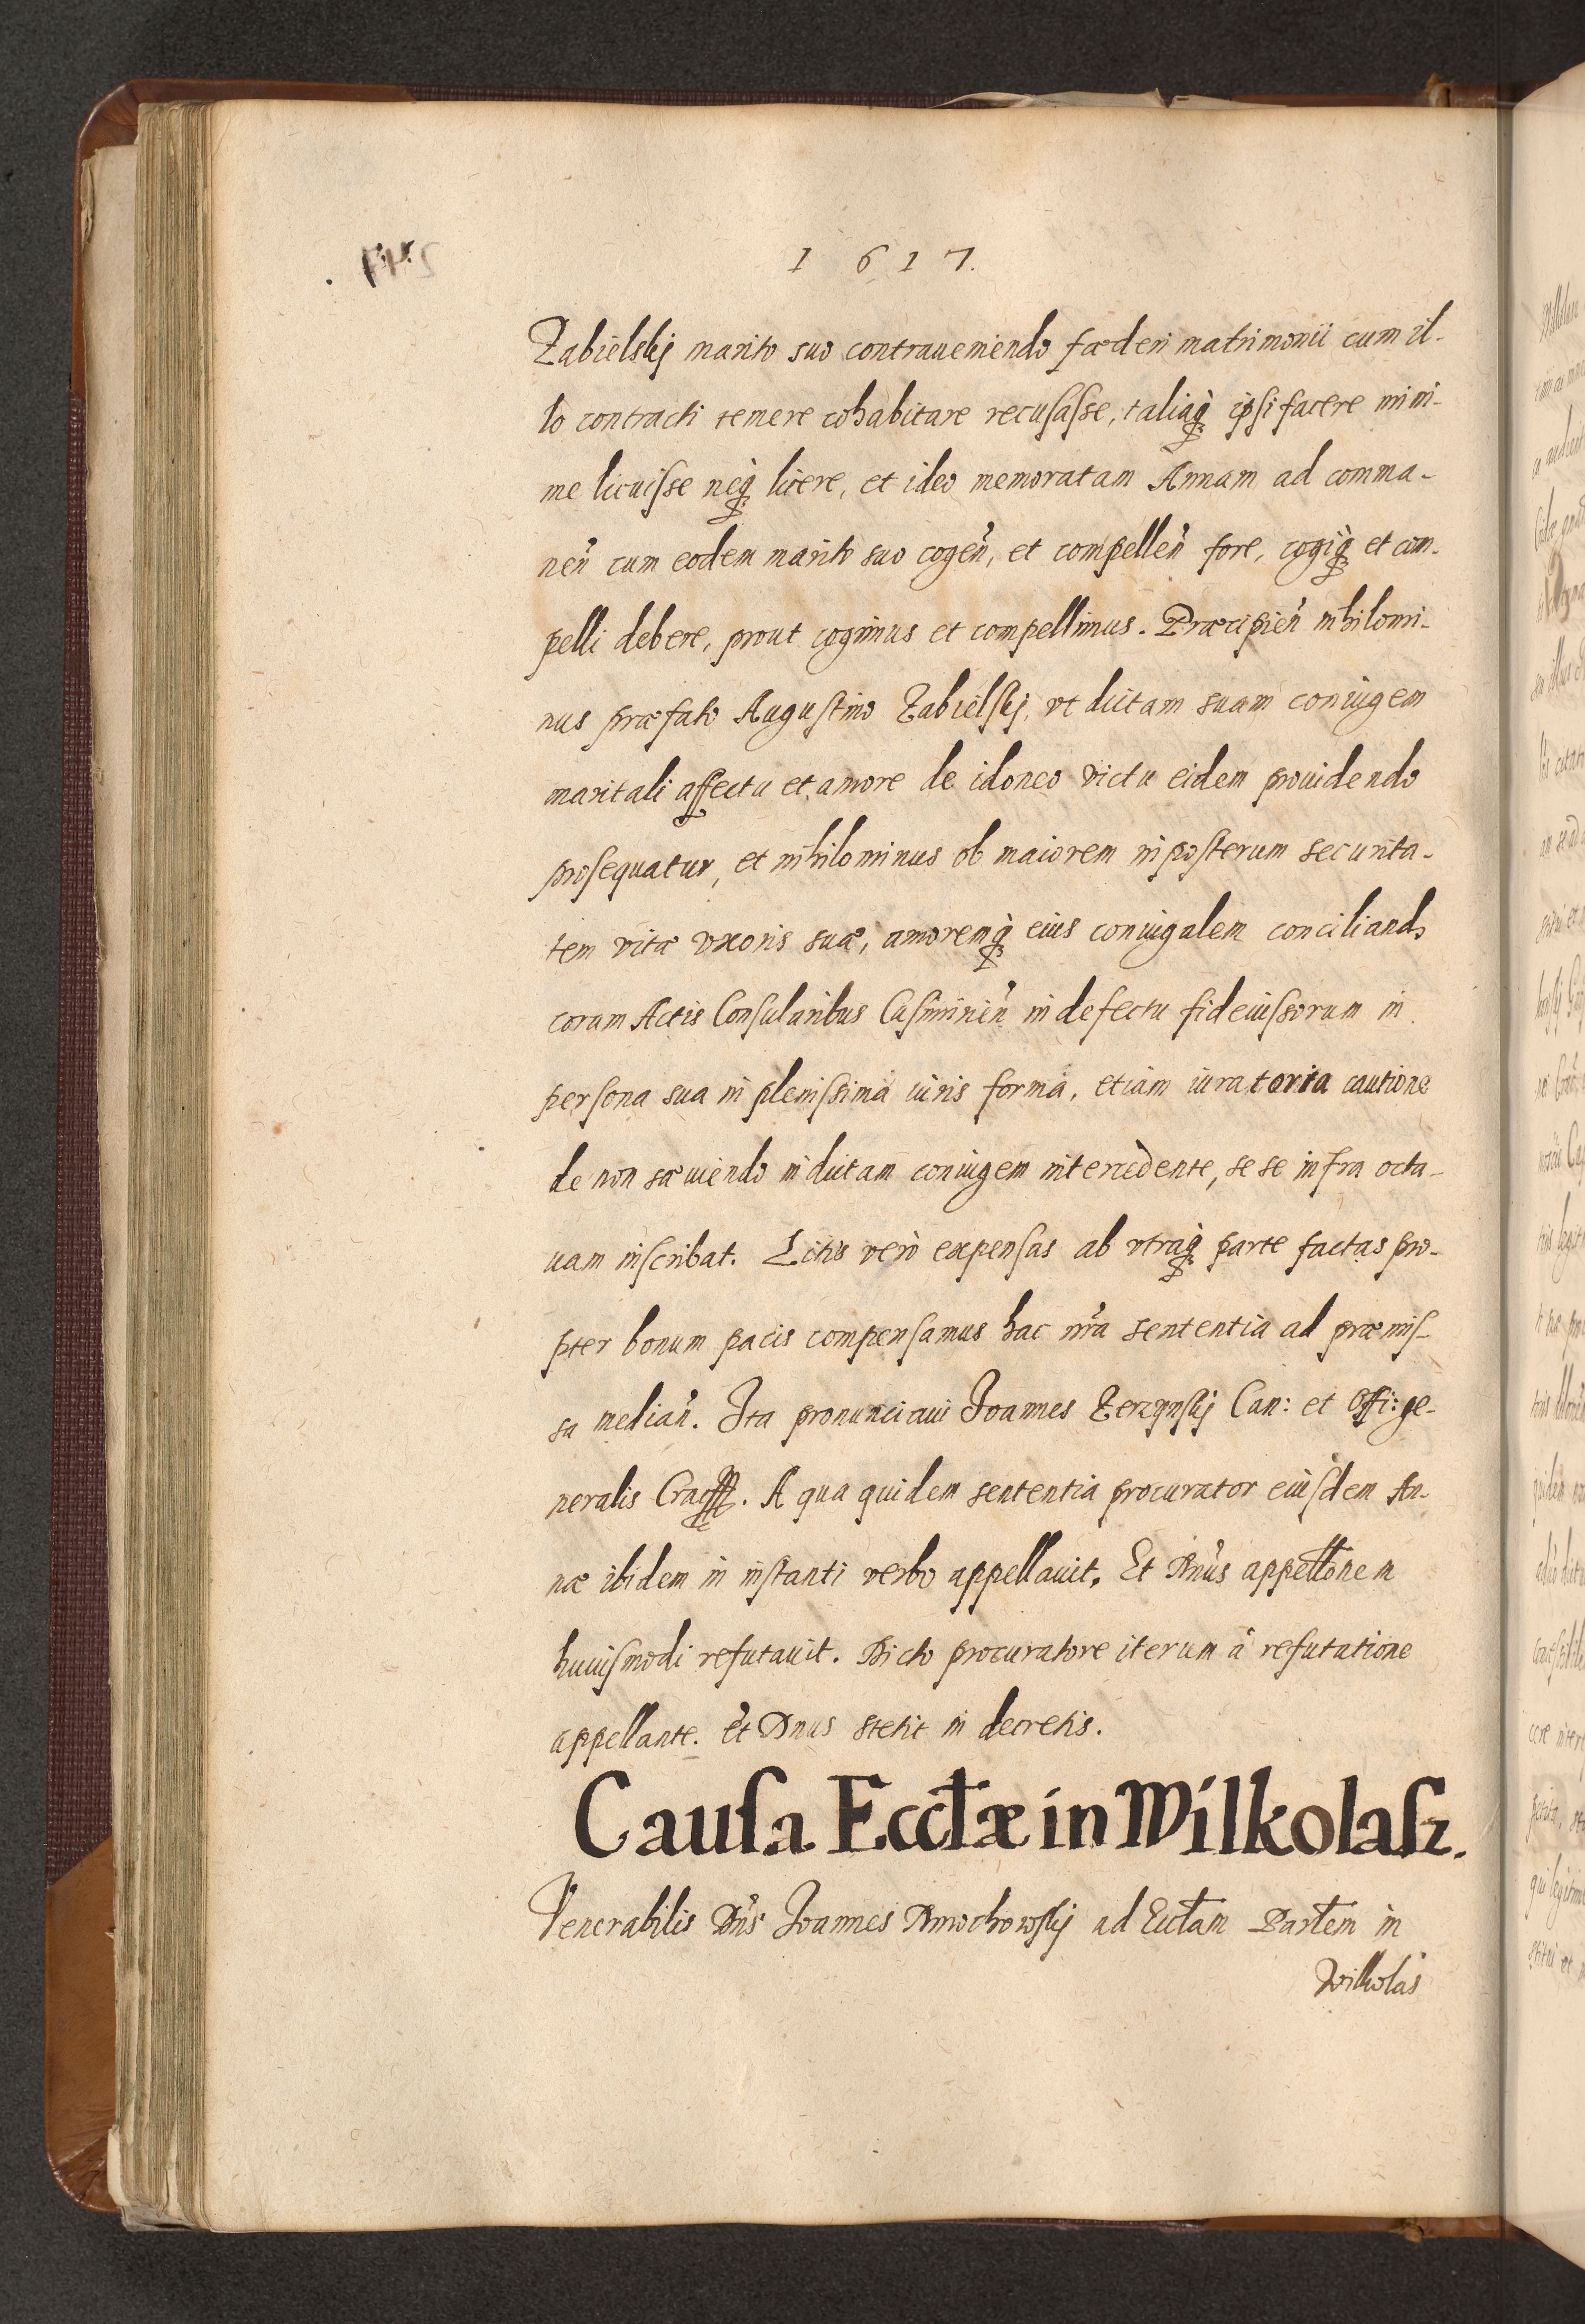 1617.
Zabielskij marito suo contraueniendo fœderi matrimonii cum il-
lo contracti temere cohabitare recusaſse, taliaq́ꝫ ipsi facere mini-
me licuiſse neq́ꝫ licere, et ideo memoratam Annam ad comma-
neñ cum eodem marito suo cogeñ, et compelleñ fore, cogiq́ꝫ et com-
pelli debere, prout cogimus et compellimus. Præcipieñ nihilomi-
nus præfato Auguſtino Zabielſkij, vt dictam suam coniugem
maritali affectu et amore de idoneo victu eidem prouidendo
proſequatur, et nihilominus ob maiorem in poſterum securita-
tem vitæ vxoris suæ, amoremq́ꝫ eius coniugalem conciliand,
coram Actis Conſularibus Caſimirieñ in defectu fideiuſsorum in
perſona sua in pleniſsima iuris forma, etiam iuratoria cautione
de non sæuiendo in dictam coniugem intercedente, sese infra octa-
uam inſcribat. Litis verò expenſas ab vtraq́ꝫ parte factas pro-
pter bonum pacis compenſamus hac ñra sententia ad præmiſ-
sa mediañ. Ita pronunciaui Joannes Zerzynſkij Can: et Offi: ge-
neralis Cracſſ. A qua quidem sententia procurator eiuſdem An-
næ ibidem in inſtanti verbo appellauit. Et Dñus appełłonem
huiuſmodi refutauit. Dicto procuratore iterum à refutatione
appellante. Et Dnus stetit in decretis.
Cauſa Eccłæ in Wilkolaſz.
Venerabilis Dñs Joannes Dmochowſkij ad Eccłam Parłem in
Wilkolas